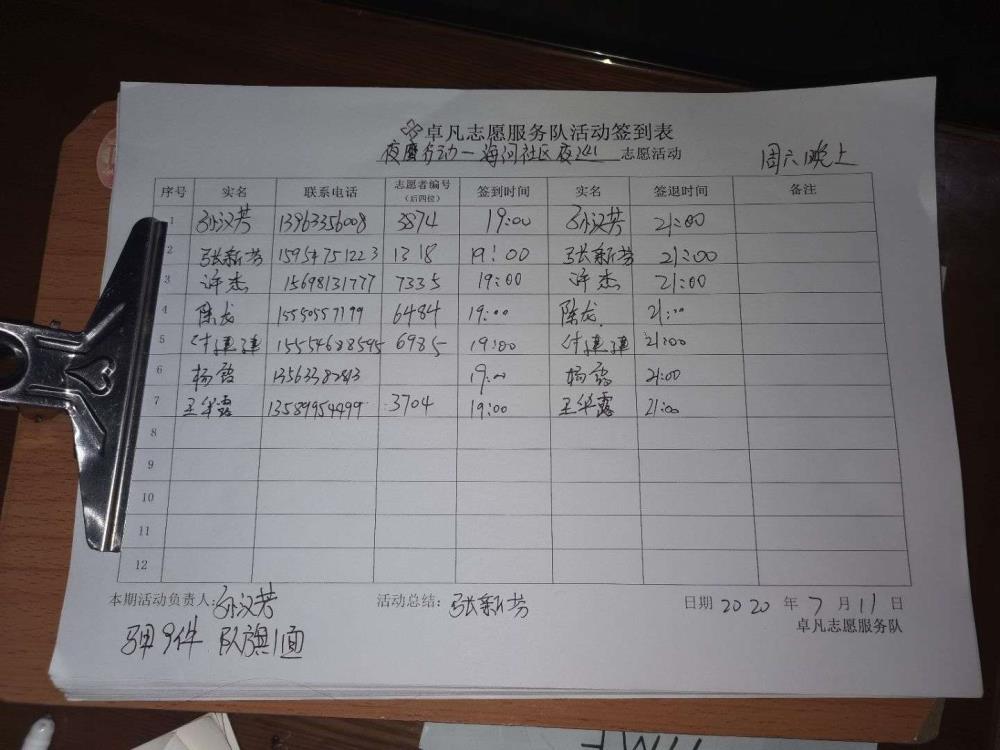 卓凡志愿服务队活动签到表
夜鹰行动一海河社区夜巡 志愿活动 周六晚上
序号 实名 联系电话 志愿者编号（后四位） 签到时间 实名 签退时间 备注
1 孙汉芳 13963356008 3874 19:00 孙汉芳 21:00
2 张新芳 15954751223 1318 19:00 张新芳 21:00
3 许杰 15698131777 7335 19:00 许杰 21:00
4 陈龙 15550557199 6484 19:00 陈龙 21:00
5 15554688595 6985 19:00 21:00
6 杨露 13563382813 19:00 杨露 21:00
7 王华露 13589954499 3704 19:00 王华露 21:00
8
9
10
11
12
本期活动负责人:孙汉芳 活动总结: 张新芳 日期 2020 年 7 月 11 日
卓凡志愿服务队
马甲9件 队旗1面